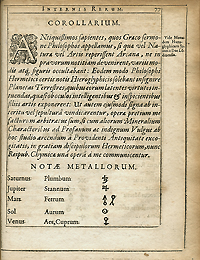 INTERNIS RERUM. 77
COROLLARIUM.
ANtiquissimos sapientes, quos Græco sermo-
ne Philosophos appellamus, si qua vel Na-
turæ vel Artis reperissent Arcana, ne in
pravorum notitiam devenirent, variis mo-
dis atq, figuris occultabant: Eodem modo Philosophi
Hermetici certis notis Hieroglyphicis solebant insignire
Planetas Terrestres, quibus eorum latentes virtutes in-
nuebant, quasq, solis intelligentibus &
filiis artis exponerent. Ut autem quid signa ab in-
teritu vel sepultura vindicarentur, operæ pretium me
facturum arbitratus sum, si cum aliorum Mineralium
Characteribus ad Profanum ac indignum Vulgus ab
hoc studio arcendum à Providenti Antiquitate exco-
gitatis, in gratiam discipulorum Hermeticorum, nunc
Reipub. Chymicæ unâ operâ à me communicentur.
Vide Mona-
dem Hiero-
glyphicam Jo-
annis Dee Lõ-
dinensis.
NOTÆ METALLORUM.
Saturnus Plumbum ♄
Jupiter Stannum ♃
Mars Ferrum ♂
Sol Aurum ☉
Venus Aes, Cuprum ♀